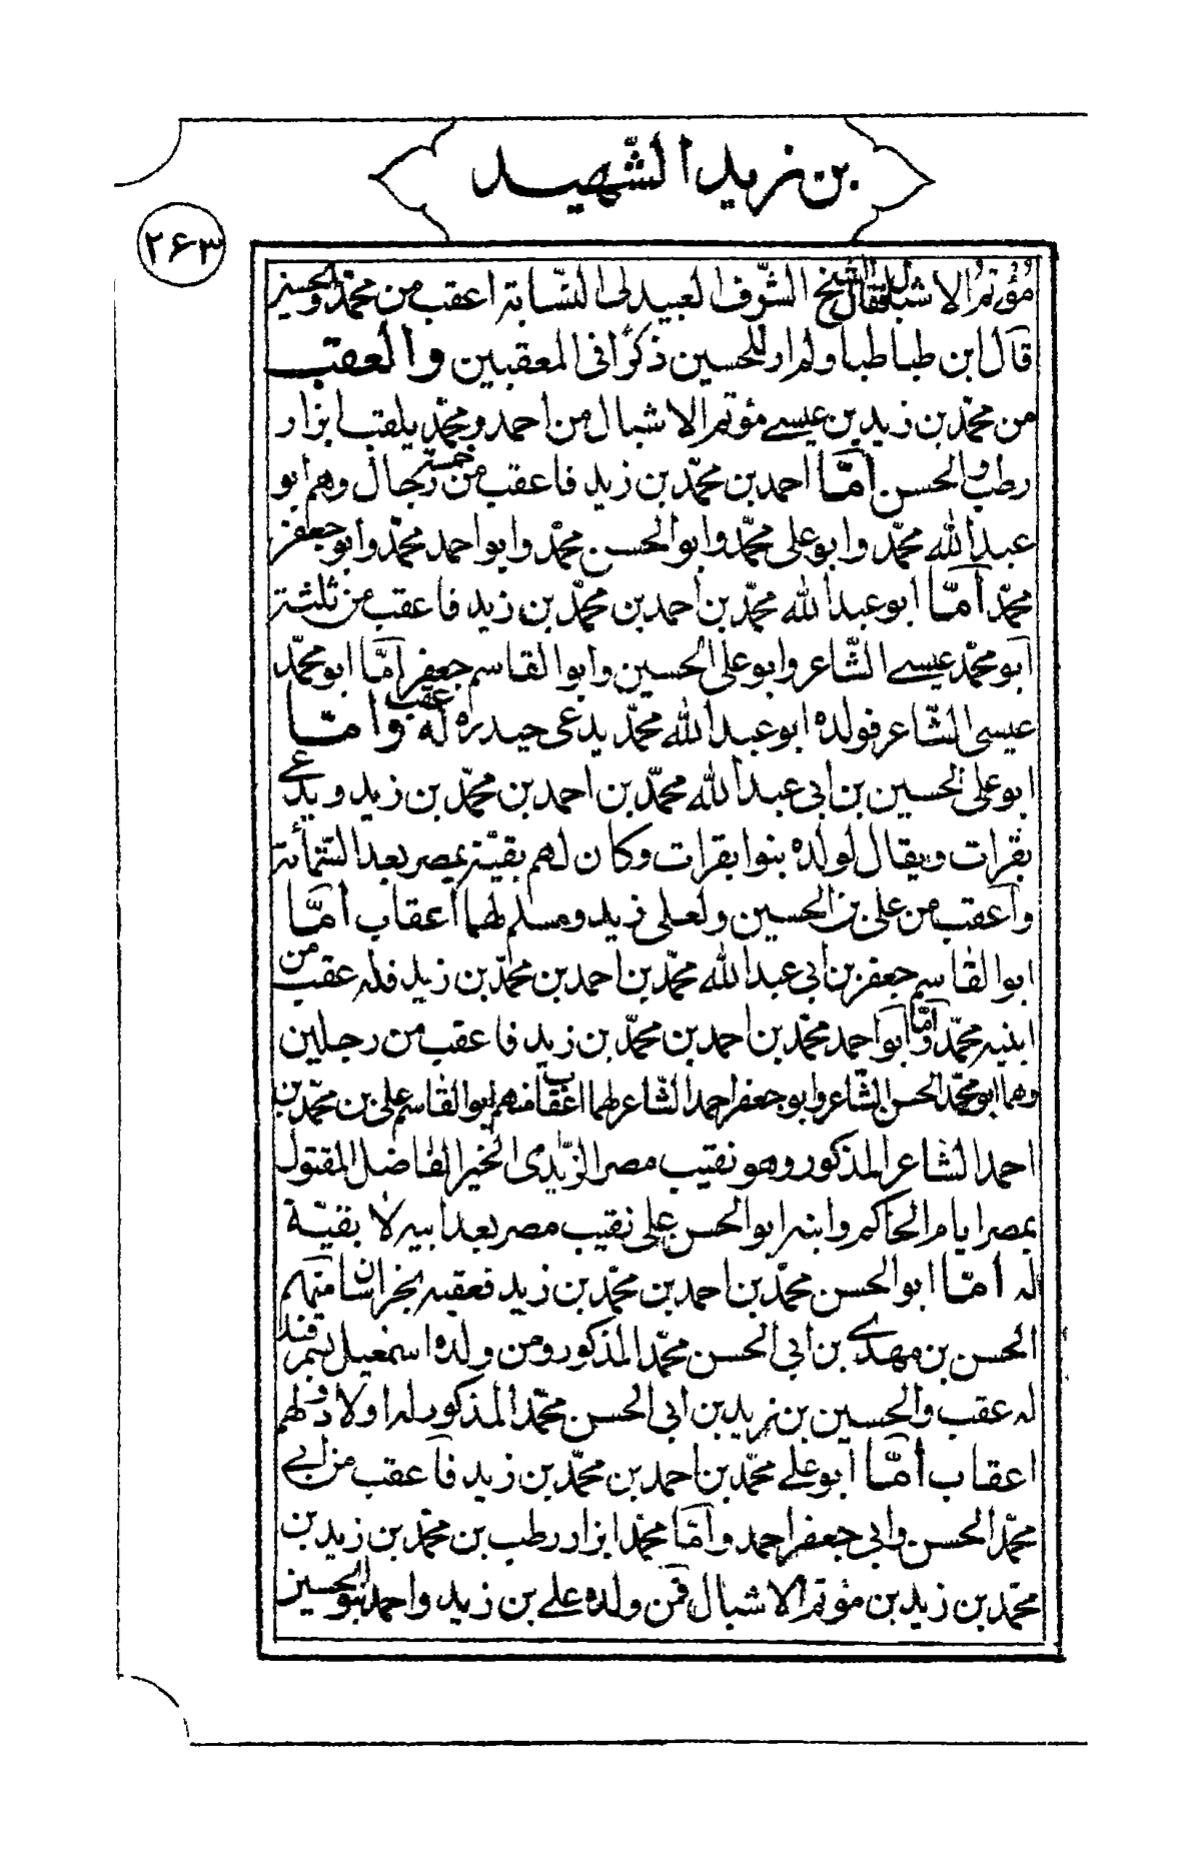 بن زيد الشّهيد
٢٦٣
مؤتم الاشبال فقال الشيخ الشّرف العبيدلى النسّابة اعقب من محمّد والحسين
قال ابن طباطبا ولم ار للحسين ذكرا فى المعقبين والعقب
من محمّد بن زيد بن عيسے مؤتم الاشبال من احمد ومحمّد يلقب ابزار
رطب والحسن امّا احمد بن محمّد بن زيد فاعقب من خمسة رجال وهم ابو
عبد الله محمّد وابو على محمّد وابو الحسن محمّد وابو احمد محمّد وابو جعفر
محمّد امّا ابو عبد الله محمّد بن احمد بن محمّد بن زيد فاعقب من ثلثة
ابو محمّد عيسے الشّاعر وابو على الحسين وابو القاسم جعفر امّا ابو محمّد
عيسى الشّاعر فولده ابو عبد الله محمّد يدعى حيدره له عقب وامّا
ابو على الحسين بن ابى عبد الله محمّد بن احمد بن محمّد بن زيد ويدعے
بقرات ويقال لولده بنوا بقرات وكان لهم بقيّة بمصر بعد السّتمائة
واعقب من على بن الحسين ولعلى زيد ومسلم لهما اعقاب امّا
ابو القاسم جعفر بن ابى عبد الله محمّد بن احمد بن محمّد بن زيد فله عقب من
ابنه محمّد وامّا ابو احمد محمّد بن احمد بن محمّد بن زيد فاعقب من رجلين
وهما ابو محمّد الحسن الشّاعر وابو جعفر احمد الشّاعر لهما اعقاب منهم ابو القاسم على بن محمّد بن
احمد الشاعر المذكور وهو نقيب مصر الزّيدى الخير الفاضل المقتول
بمصر ايام الحاكم وابنه ابو الحسن على نقيب مصر بعد ابيه لا بقيّة
له امّا ابو الحسن محمّد بن احمد بن محمّد بن زيد فعقبه بخراسان منهم
الحسن بن مهدے بن ابى الحسن محمّد المذكور ومن ولده اسمعيل بسمرقند
له عقب والحسين بن زيد بن ابى الحسن محمّد المذكور له اولاد ولهم
اعقاب امّا ابو علے محمّد بن احمد بن محمّد بن زيد فاعقب من ابے
محمّد الحسن وابى جعفر احمد وامّا محمّد ابزار رطب بن محمّد بن زيد بن
محمّد بن زيد بن مؤتم الاشبال فمن ولده علے بن زيد واحمد بنو الحسين